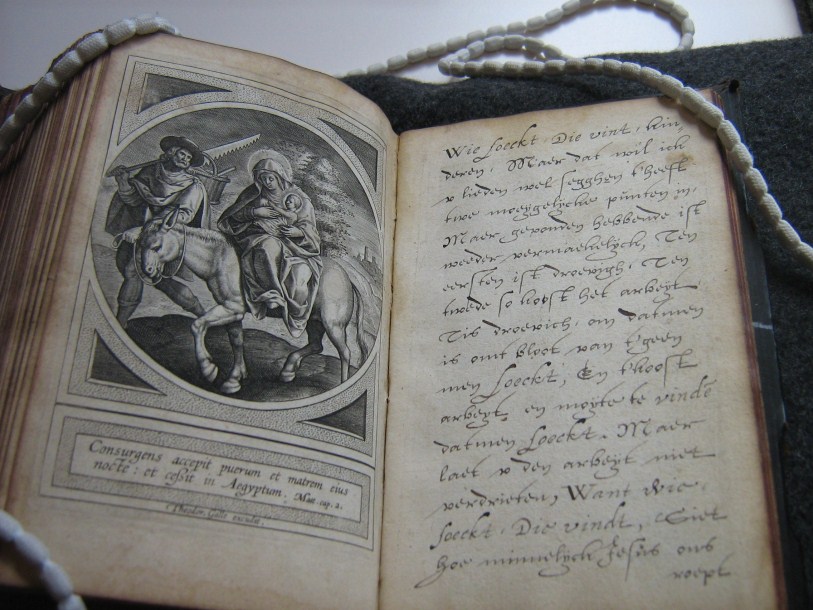 Consurgens accepit puerum et matrem eius
nocte: et cessit in Aegyptum. Mat. cap. 2.
Theodor. Galle excudit.
Wie soeckt. Die vint, kin,
deren. Maer dat wil ick
v lieden wel segghen t'heeft
twe moeyelycke punten in.
Maer gevonden hebbende ist
weeder vermaekelyck, Ten
eersten ist droevigh, Ten
twede so kost het arbeyt.
Tis droevich, om datmen
is ont bloot van t'geen
men soeckt, En t'kost
arbeyt, en moyte te vindē
datmen soeckt. Maer
laet v den arbeyt niet
verdrieten, Want wie,
soeckt, Die vindt, Siet
hoe minnelyck Jesus ons
roept